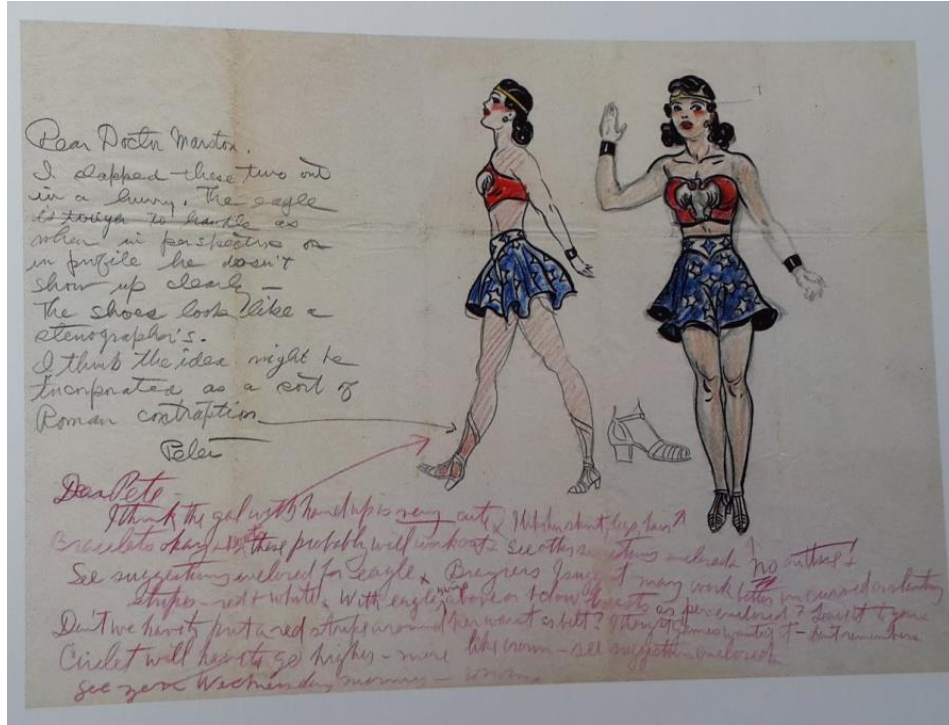 Dear Doctor Marston,
I slapped these two out
in a hurry. The eagle
is tough to handle as
when in perspective or
in profile he doesn't
show up clearly —
The shoes look like a
stenographer's.
I think the idea might be
incorporated as a sort of
Roman contraption
Peter
Dear Pete —
I think the gal with hand up is very cute. I like her skirt, legs, hair
Bracelets okay + these probably will work out. See other suggestions enclosed. No on these +
See suggestions enclosed for eagle
stripes — red + white. With eagle's wings above or below breasts as per enclosed? Leave it to you.
Don't we have to put a red stripe around her waist as belt? I thought Gaines wanted it — don't remember.
Circlet will have to go higher — more like crown — see suggestions enclosed.
See you Wednesday morning —